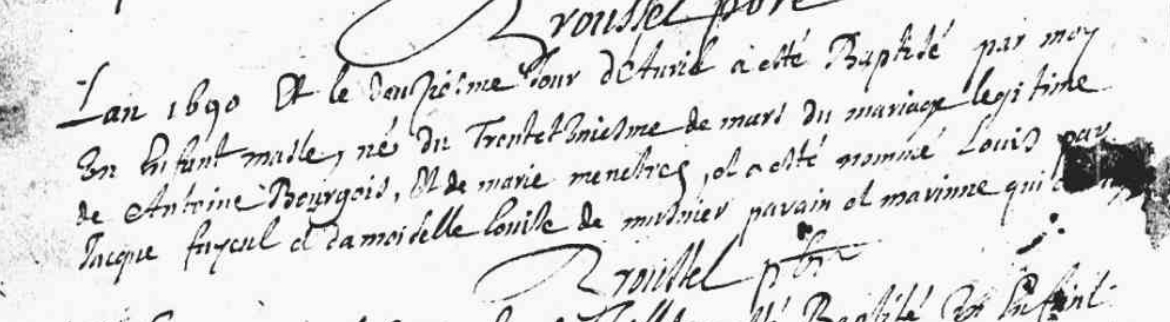 Broussel pbre
Lan 1690 Et le deuxiesme Jour d'Avril à esté Baptisé par moy
En Enfant masle, né du Trentetuniesme de mars du mariage legitime
de Antoine Bourgois, Et de marie menestrez, et a esté nommé Louis par
Jacque fayeul et damoiselle Louise de musnier parain et marinne qui
Broussel pbre
Baptisé Vn Enfant